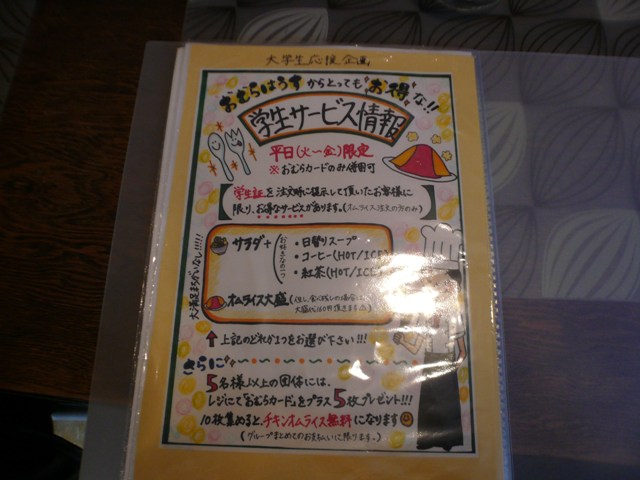 大学生応援企画
おむらはうすからとってもお得な!!
学生サービス情報
平日(火～金)限定
※おむらカードのみ併用可
学生証を注文時に提示して頂いたお客様に
限り、お得なサービスがあります。(オムライス注文の方のみ)
大満足まちがいなし!!!!!
サラダ+
お好きなの一つ
・日替りスープ
・コーヒー(HOT/ICE)
・紅茶(HOT/ICE)
オムライス大盛
上記のどれか1つをお選び下さい!!!
さらに
5名様以上の団体には、
レジにて「おむらカード」をプラス5枚プレゼント!!!
10枚集めると、チキンオムライス無料になります
(グループまとめてのお支払いに限ります。)